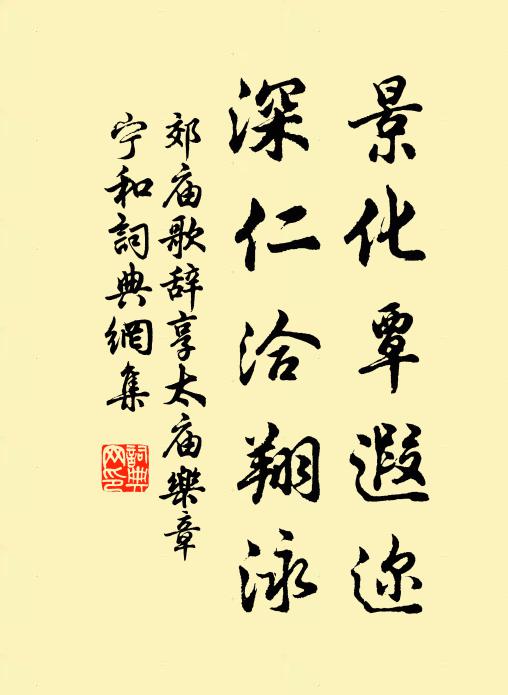 景化覃遐迩
深仁洽翔泳
郊庙歌辞享太庙樂章
宁和詞典網集
詞典
网印